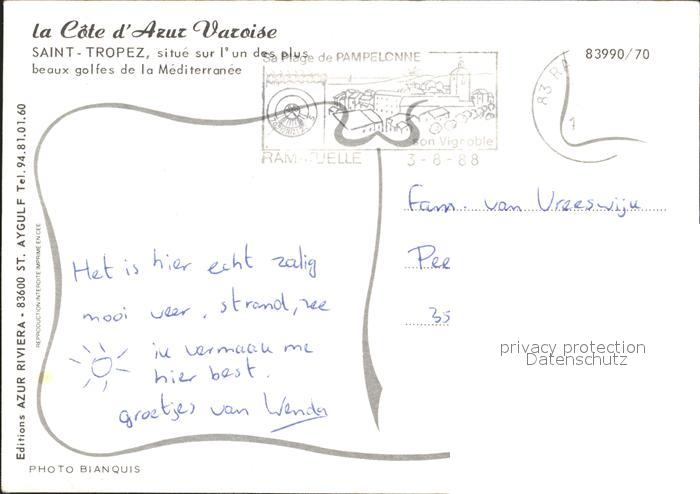 la Côte d'Azur Varoise
SAINT-TROPEZ, situé sur l'un des plus
beaux golfes de la Méditerranée
Sa Plage de PAMPELONNE
son Vignoble
RAMATUELLE 3-8-88
83990/70
83 RA
Editions AZUR RIVIERA - 83600 ST. AYGULF Tel. 94.81.01.60
REPRODUCTION INTERDITE IMPRIME EN CEE
Fam. van Vreeswijk
Pee
35
Het is hier echt zalig
mooi weer, strand, zee
ik vermaak me
hier best.
groetjes van Wenda
privacy protection
Datenschutz
PHOTO BIANQUIS